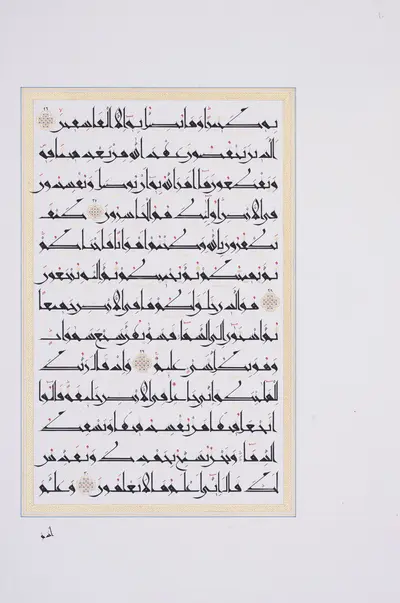 ١٠
به كثيرا وما يضل به الا الفاسقين
الذين ينقضون عهد الله من بعد ميثاقه
ويقطعون ما امر الله به ان يوصل ويفسدون
في الارض اولئك هم الخاسرون كيف
تكفرون بالله وكنتم امواتا فاحياكم
ثم يميتكم ثم يحييكم ثم اليه ترجعون
هو الذي خلق لكم ما في الارض جميعا
ثم استوى الى السماء فسويهن سبع سموات
وهو بكل شيء عليم واذ قال ربك
للملئكة اني جاعل في الارض خليفة قالوا
اتجعل فيها من يفسد فيها ويسفك
الدماء ونحن نسبح بحمدك ونقدس
لك قال اني اعلم ما لا تعلمون وعلم
ادم